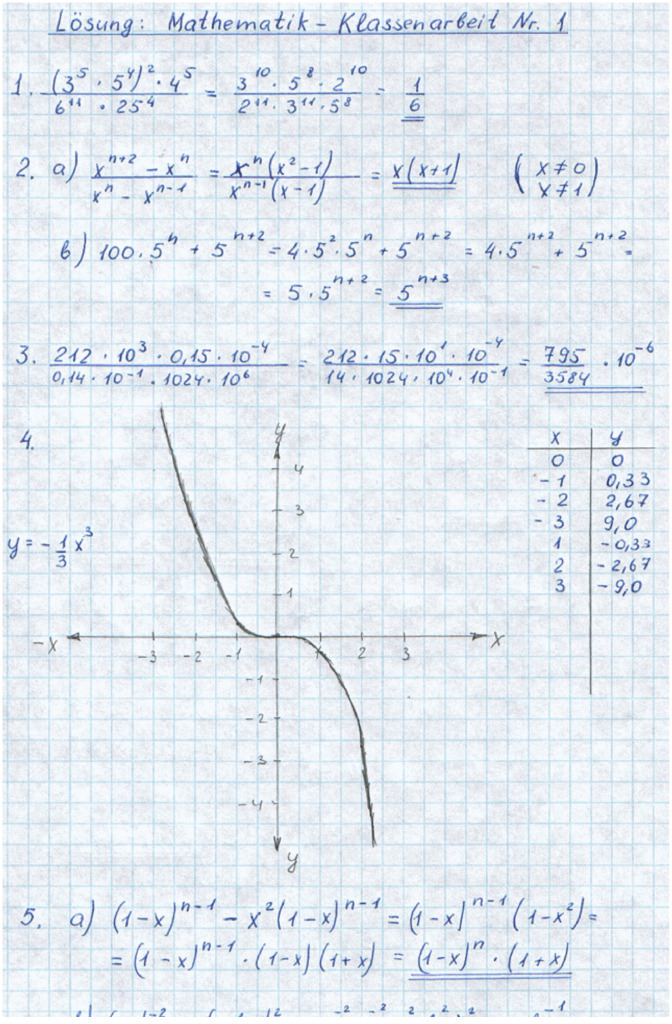 Lösung: Mathematik - Klassenarbeit Nr. 1
1. (3⁵ · 5⁴)² · 4⁵ / 6¹¹ · 25⁴ = 3¹⁰ · 5⁸ · 2¹⁰ / 2¹¹ · 3¹¹ · 5⁸ = 1/6
2. a) xⁿ⁺² - xⁿ / xⁿ - xⁿ⁻¹ = xⁿ(x²-1) / xⁿ⁻¹(x-1) = x(x+1) (x≠0 x≠1)
b) 100 · 5ⁿ + 5ⁿ⁺² = 4 · 5² · 5ⁿ + 5ⁿ⁺² = 4 · 5ⁿ⁺² + 5ⁿ⁺² =
= 5 · 5ⁿ⁺² = 5ⁿ⁺³
3. 212 · 10³ · 0,15 · 10⁻⁴ / 0,14 · 10⁻¹ · 1024 · 10⁶ = 212 · 15 · 10¹ · 10⁻⁴ / 14 · 1024 · 10⁴ · 10⁻¹ = 795/3584 · 10⁻⁶
4.
y = -1/3 x³
y
4
3
2
1
-x -3 -2 -1 1 2 3 x
-1
-2
-3
-4
y
x y
0 0
-1 0,33
-2 2,67
-3 9,0
1 -0,33
2 -2,67
3 -9,0
5. a) (1-x)ⁿ⁻¹ - x²(1-x)ⁿ⁻¹ = (1-x)ⁿ⁻¹ (1-x²) =
= (1-x)ⁿ⁻¹ · (1-x)(1+x) = (1-x)ⁿ · (1+x)